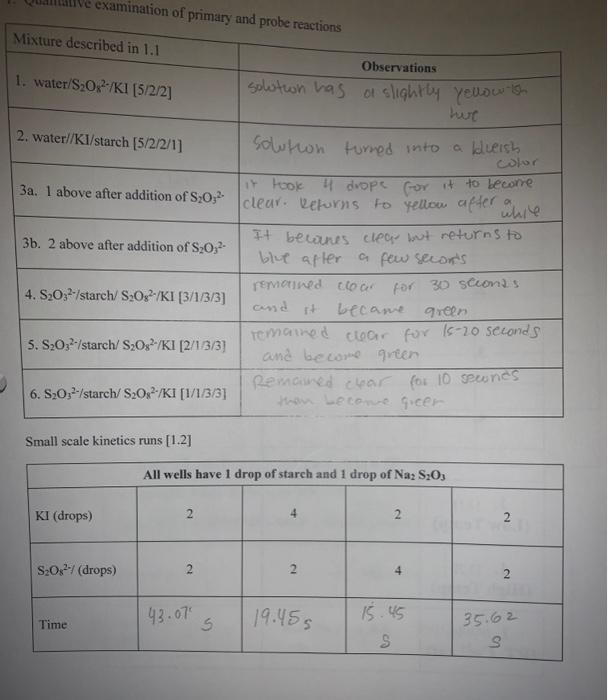 examination of primary and probe reactions
Mixture described in 1.1
Observations
1. water/S₂O₈²⁻/KI [5/2/2]
solution has a slightly yellowish
hue
2. water//KI/starch [5/2/2/1]
Solution turned into a blueish
color
3a. 1 above after addition of S₂O₃²⁻
it took 4 drops for it to become
clear. Returns to yellow after a
while
3b. 2 above after addition of S₂O₃²⁻
It becomes clear but returns to
blue after a few seconds
4. S₂O₃²⁻/starch/ S₂O₈²⁻/KI [3/1/3/3]
remained clear for 30 seconds
and it became green
5. S₂O₃²⁻/starch/ S₂O₈²⁻/KI [2/1/3/3]
remained clear for 15-20 seconds
and become green
6. S₂O₃²⁻/starch/ S₂O₈²⁻/KI [1/1/3/3]
Remained clear for 10 seconds
then become green
Small scale kinetics runs [1.2]
All wells have 1 drop of starch and 1 drop of Na₂ S₂O₃
KI (drops) 2 4 2 2
S₂O₈²⁻/ (drops) 2 2 4 2
Time 43.07 s 19.45 s 15.45 s 35.62 s